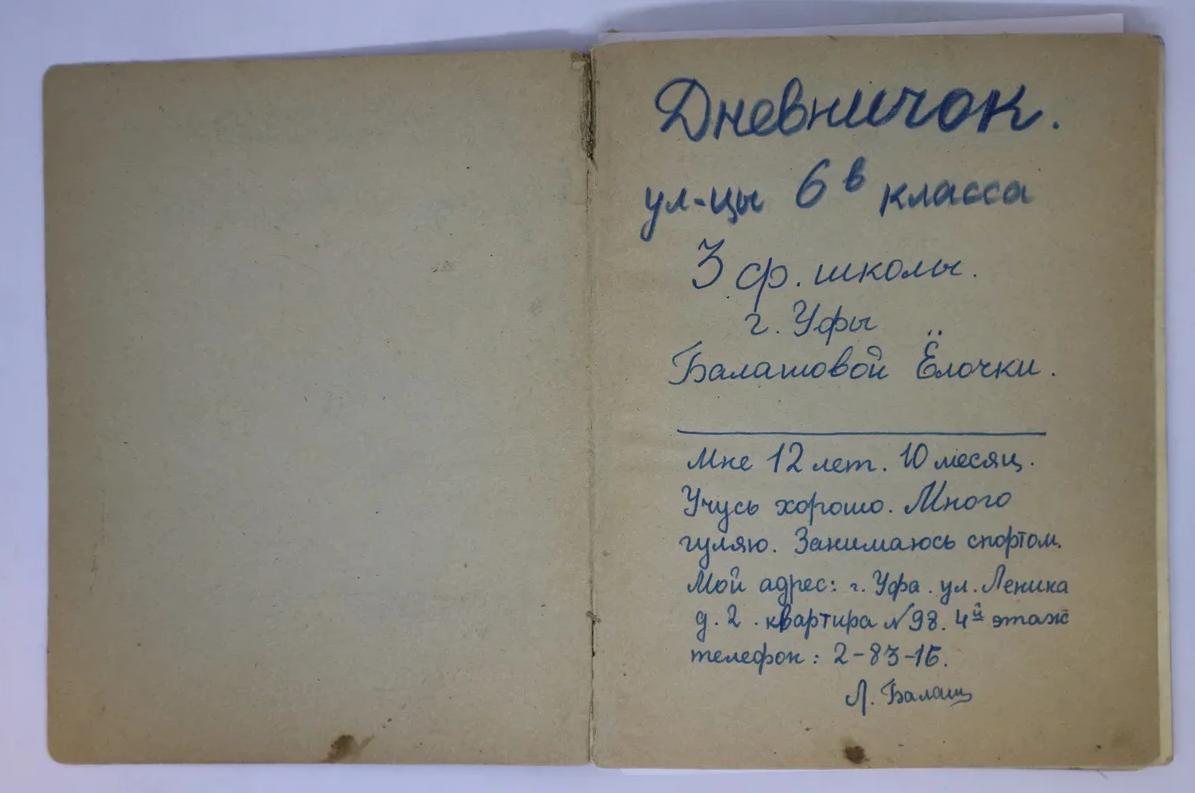 Дневничок.
ул-цы 6 в класса
3 ср. школы.
г. Уфы
Балашовой Ёлочки.
Мне 12 лет. 10 месяц.
Учусь хорошо. Много
гуляю. Занимаюсь спортом.
Мой адрес: г. Уфа. ул. Ленина
д. 2. квартира №98. 4й этаж
телефон: 2-83-16.
Л. Балаш